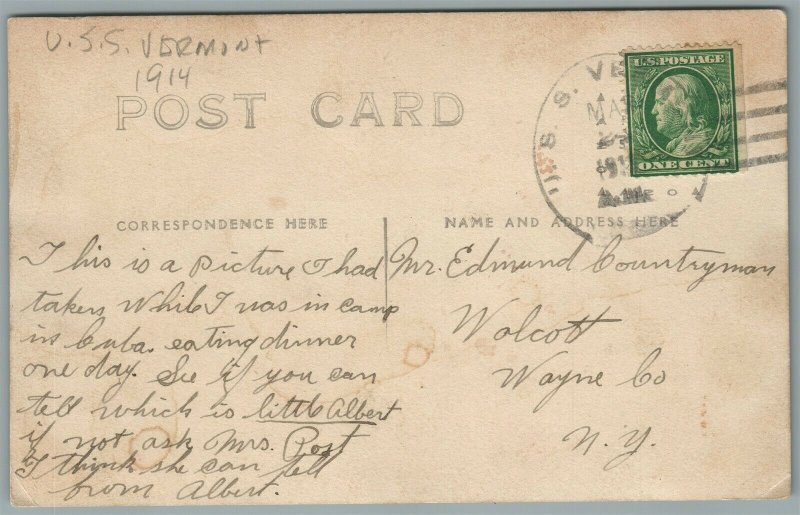 U.S.S. VERMONT
1914
POST CARD
U.S. POSTAGE
ONE CENT
U.S.S. VE
MA
CORRESPONDENCE HERE
NAME AND ADDRESS HERE
This is a picture I had
taken while I was in camp
in Cuba. eating dinner
one day. See if you can
tell which is little Albert
if not ask Mrs. Post
I think she can tell
from Albert.
Mr. Edmund Countryman
Wolcott
Wayne Co
N.Y.